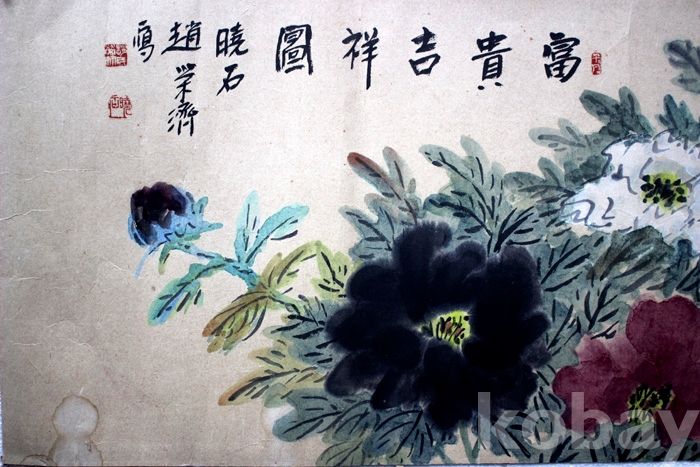 富貴吉祥圖
曉石
趙榮濟
寫
kobay